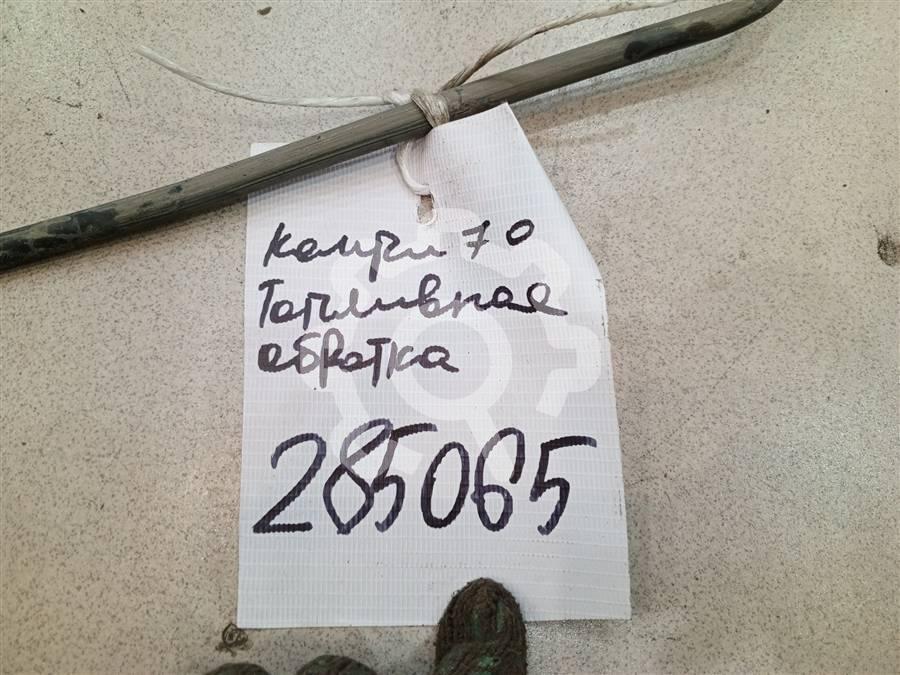 Камри 70
Топливная
обратка
285065